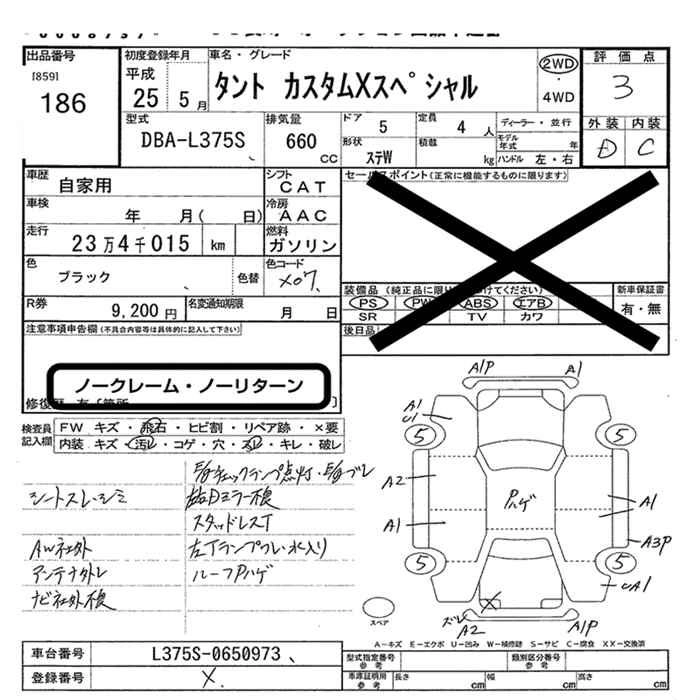 出品番号
[859]
186
初度登録年月
平成
25 5月
車名・グレード
タント カスタムXスペシャル
2WD
4WD
評価点
3
型式
DBA-L375S
排気量
660 cc
ドア 5
定員 4 人
ディーラー・並行
モデル年式 年
形状 ステW
積載 kg
ハンドル 左・右
外装 内装
D C
車歴
自家用
シフト
CAT
セールスポイント(正常に機能するものに限ります)
車検
年 月( 日)
冷房
AAC
走行
23万4千015 km
燃料
ガソリン
色
ブラック
色替
色コード
X07
装備品(純正品に限り
けてください)
PS PW ABS エアB
SR TV カワ
新車保証書
有・無
R券
9,200円
名変通知期限
月 日
後日品
注意事項申告欄(不具合内容等は具体的に記入して下さい)
ノークレーム・ノーリターン
検査員記入欄
FW キズ・飛石・ヒビ割・リペア跡・×要
内装 キズ・汚レ・コゲ・穴・スレ・キレ・破レ
E/gチェックランプ点灯・E/gブレ
シートスレ・シミ
右Dミラー不良
スタッドレスT
AW社外
左Tランプワレ・水入り
アンテナ外レ
ルーフPハゲ
ナビ社外不良
A1P A1
A1
U1
5 5
A2
Pハゲ
A1
A1
A3P
5 5
UA1
ズレ
A2
X
A1P
スペア
A-キズ E-エクボ U-凹み W-補修跡 S-サビ C-腐食 XX-交換済
車台番号
L375S-0650973
型式指定番号 参考
類別区分番号 参考
登録番号
X
車庫証明用 参考
長さ cm
幅 cm
高さ cm